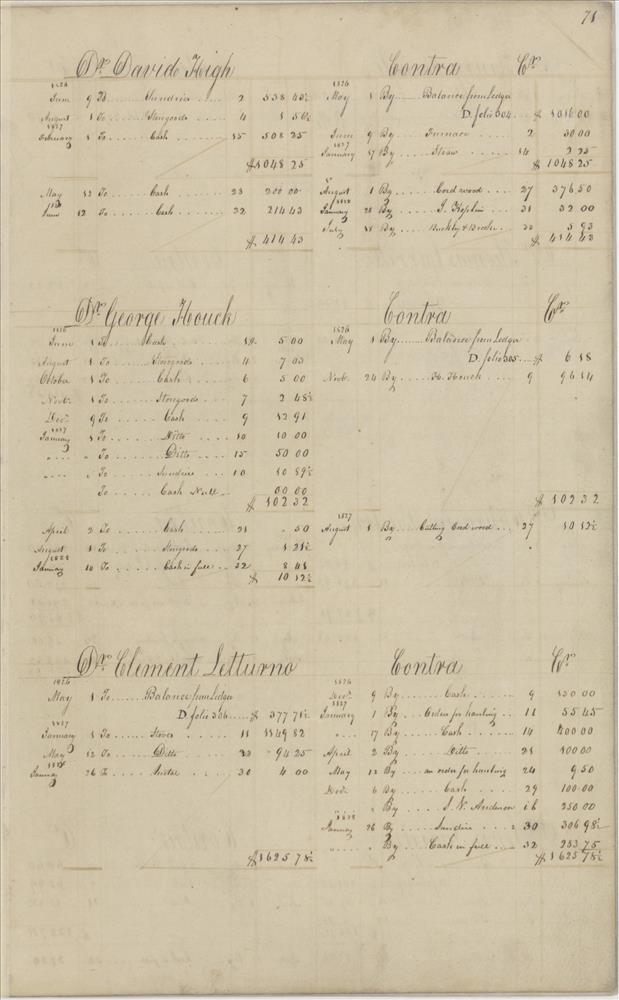 71
Dr. David High
1826
June 9 To Sundries 2 538 43½
August 1 To Storegoods 4 1 56½
1827
February 1 To Cash 15 508 25
$1048 25
May 12 To Cash 23 200 00
1828
June 12 To Cash 32 214 43
$414 43
Contra Cr.
1826
May 1 By Balance from Ledger
D. folio 304 $1016 00
June 9 By Furnace 2 30 00
1827
January 17 By Straw 14 2 25
$1048 25
August 1 By Cord wood 27 376 50
1828
January 28 By J. 31 32 00
July 18 By & Brooke 33 5 93
$414 43
Dr. George Houck
1826
June 1 To Cash 5 00
August 1 To Storegoods 4 7 03
October 1 To Cash 6 5 00
Novr. 1 To Storegoods 7 2 48½
Decr. 9 To Cash 9 12 91
1827
January 1 To Ditto 10 10 00
" " To Ditto 15 50 00
" " To Sundries 10 10 89½
To Cash 00 00
$102 32
April 2 To Cash 21 50
August 1 To Storegoods 27 1 21½
1828
January 10 To Cash in full 32 8 41
$10 12½
Contra Cr.
1826
May 1 By Balance from Ledger
D. folio 305 $6 18
Novr. 24 By H. Houck 9 96 14
$102 32
1827
August 1 By Cutting Cord wood 27 10 12½
Dr. Clement Letturno
1826
May 1 To Balance from Ledger
D. folio 306 $377 71½
1827
January 1 To Stoves 11 1149 82
May 12 To Ditto 23 94 25
1828
January 26 To 30 4 00
$1625 78½
Contra Cr.
1826
Decr. 9 By Cash 9 150 00
1827
January 1 By Orders for hauling 11 55 45
" 17 By Cash 14 400 00
April 2 By Ditto 21 100 00
May 12 By an order for hauling 24 9 50
Decr. 6 By Cash 29 100 00
" " By S. W. Anderson 16 250 00
1828
January 26 By Sundries 30 306 98½
" " By Cash in full 32 253 75
$1625 78½